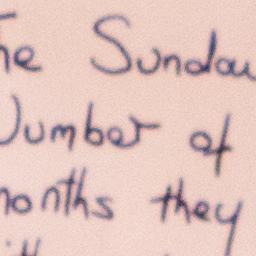 he Sunday
Number of
months they